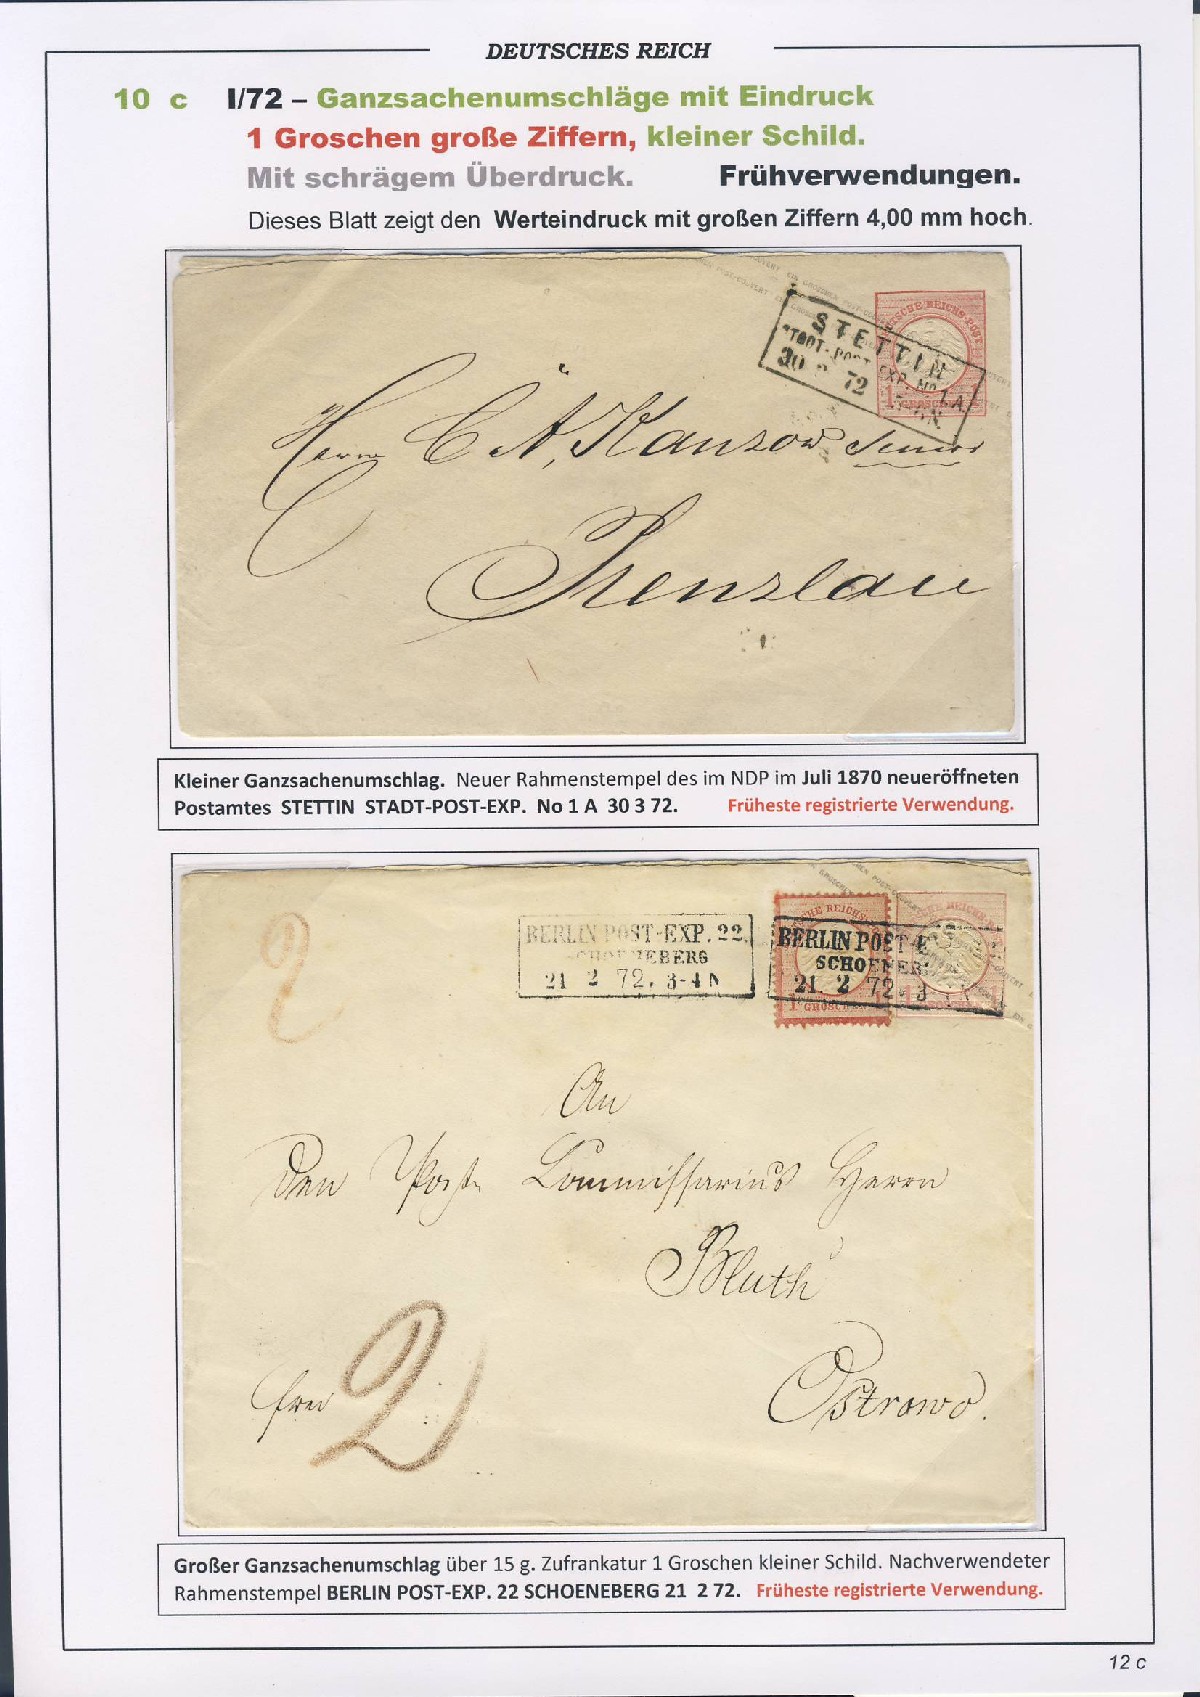 DEUTSCHES REICH
10 c I/72 – Ganzsachenumschläge mit Eindruck
1 Groschen große Ziffern, kleiner Schild.
Mit schrägem Überdruck. Frühverwendungen.
Dieses Blatt zeigt den Werteindruck mit großen Ziffern 4,00 mm hoch.
STETTIN
STADT-POST-EXP. No 1.A.
30 72
1 GROSCHEN
Herrn C A, Kanzow Senior
Prenzlau
Kleiner Ganzsachenumschlag. Neuer Rahmenstempel des im NDP im Juli 1870 neueröffneten
Postamtes STETTIN STADT-POST-EXP. No 1 A 30 3 72. Früheste registrierte Verwendung.
2
BERLIN POST-EXP. 22.
SCHOENEBERG
21 2 72. 3-4 N
DEUTSCHE REICHS-POST
BERLIN POST-E
SCHOENEBER
21. 2 72. 3
1 GROSCHEN
An
den Post Commissarius Herrn
Bluth
Ostrowo.
frei 2
Großer Ganzsachenumschlag über 15 g. Zufrankatur 1 Groschen kleiner Schild. Nachverwendeter
Rahmenstempel BERLIN POST-EXP. 22 SCHOENEBERG 21 2 72. Früheste registrierte Verwendung.
12 c